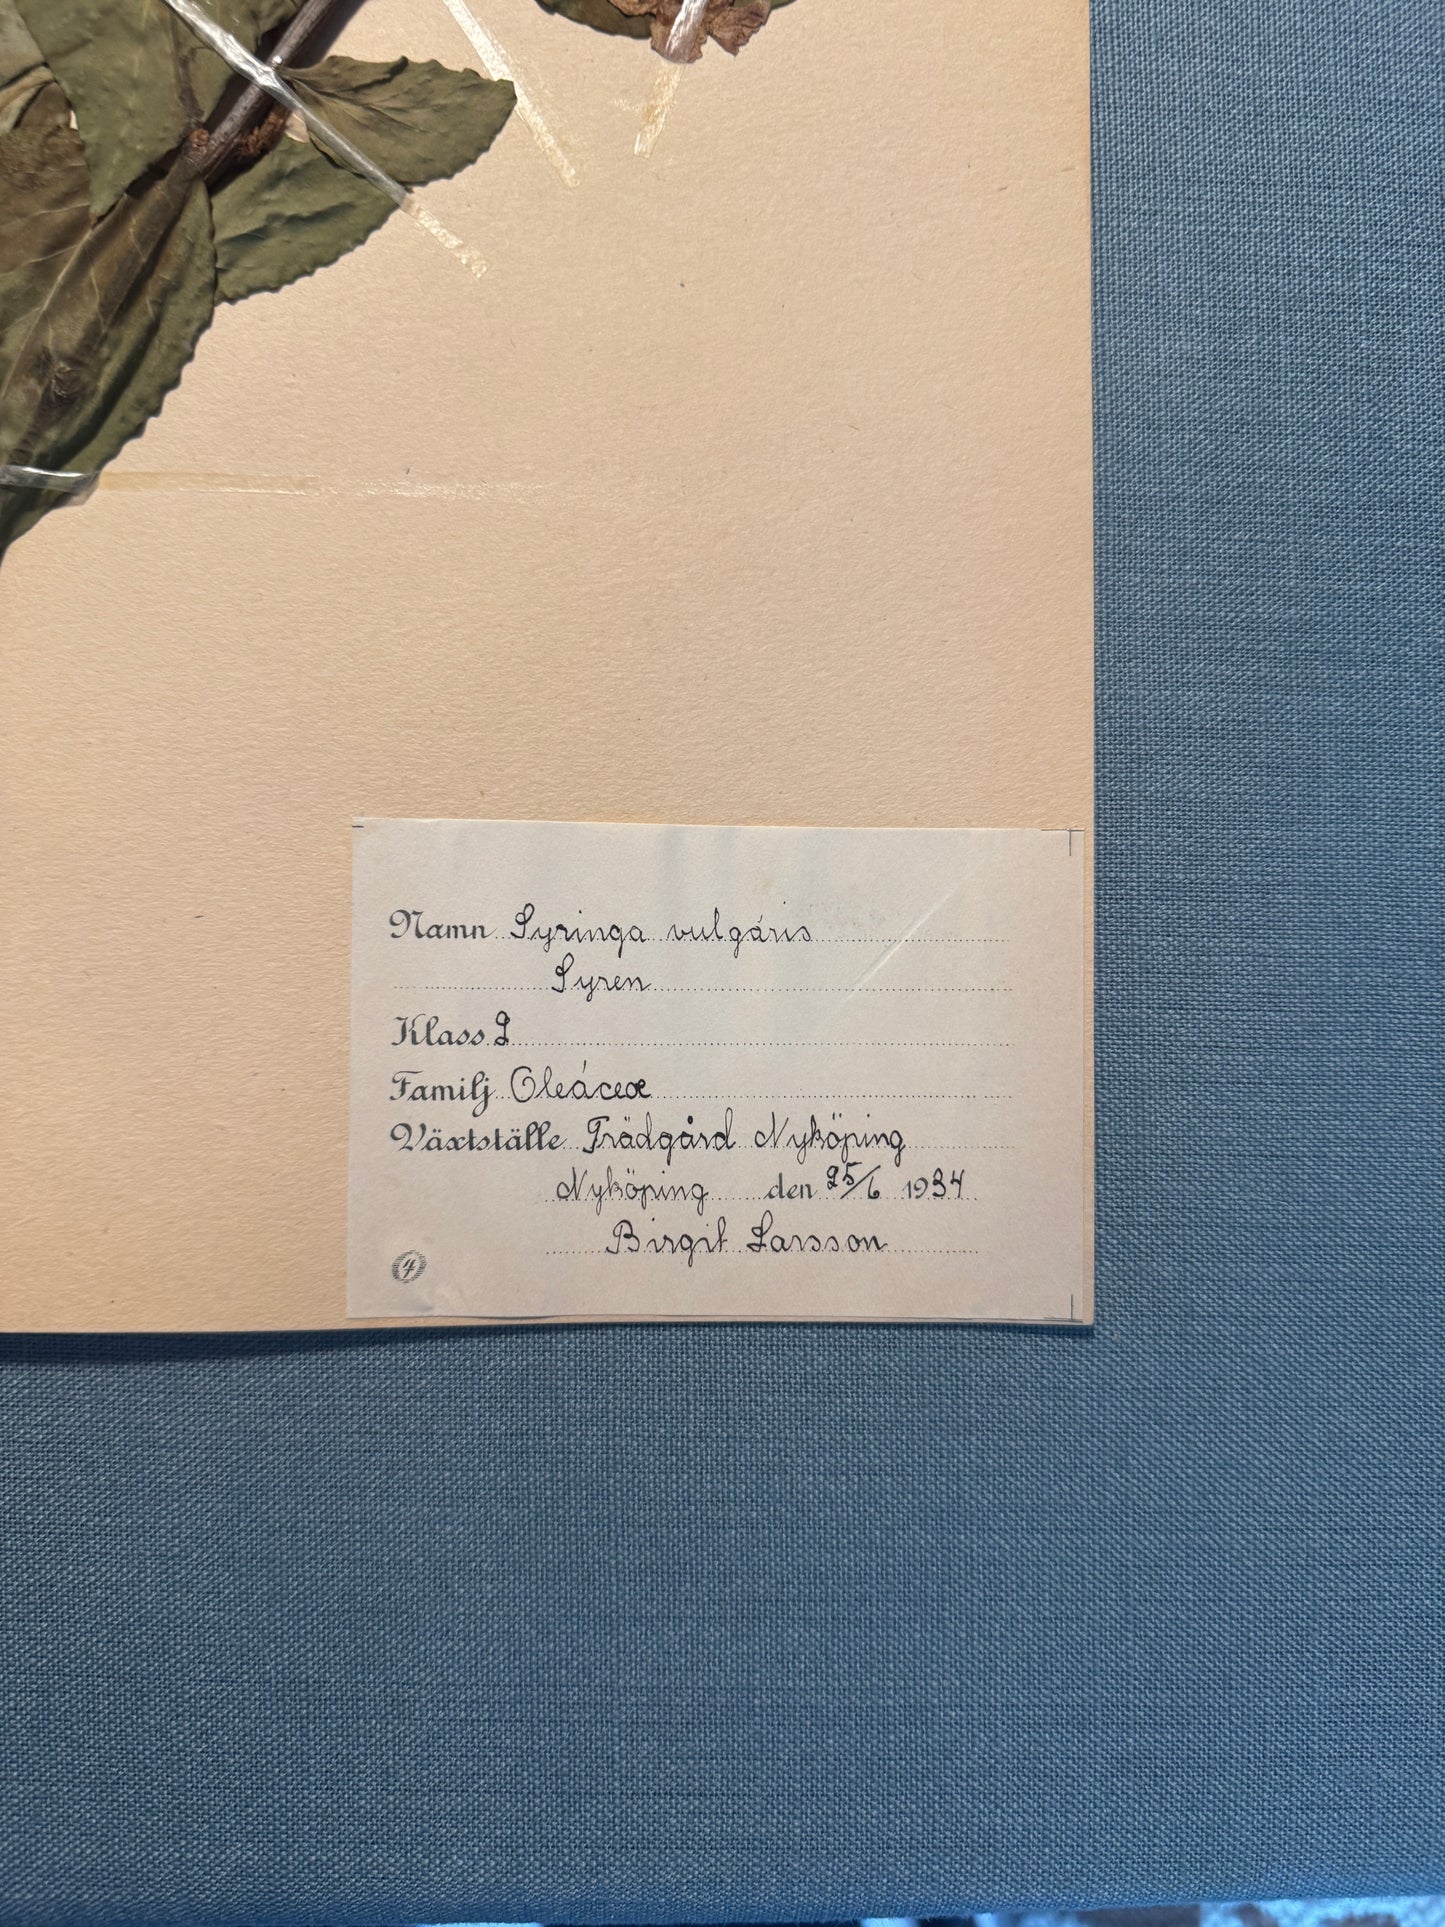 Namn Syringa vulgáris
Syren
Klass 2
Familj Oleáceæ
Växtställe Trädgård Nyköping
Nyköping den 25/6 1934
Birgit Larsson
4